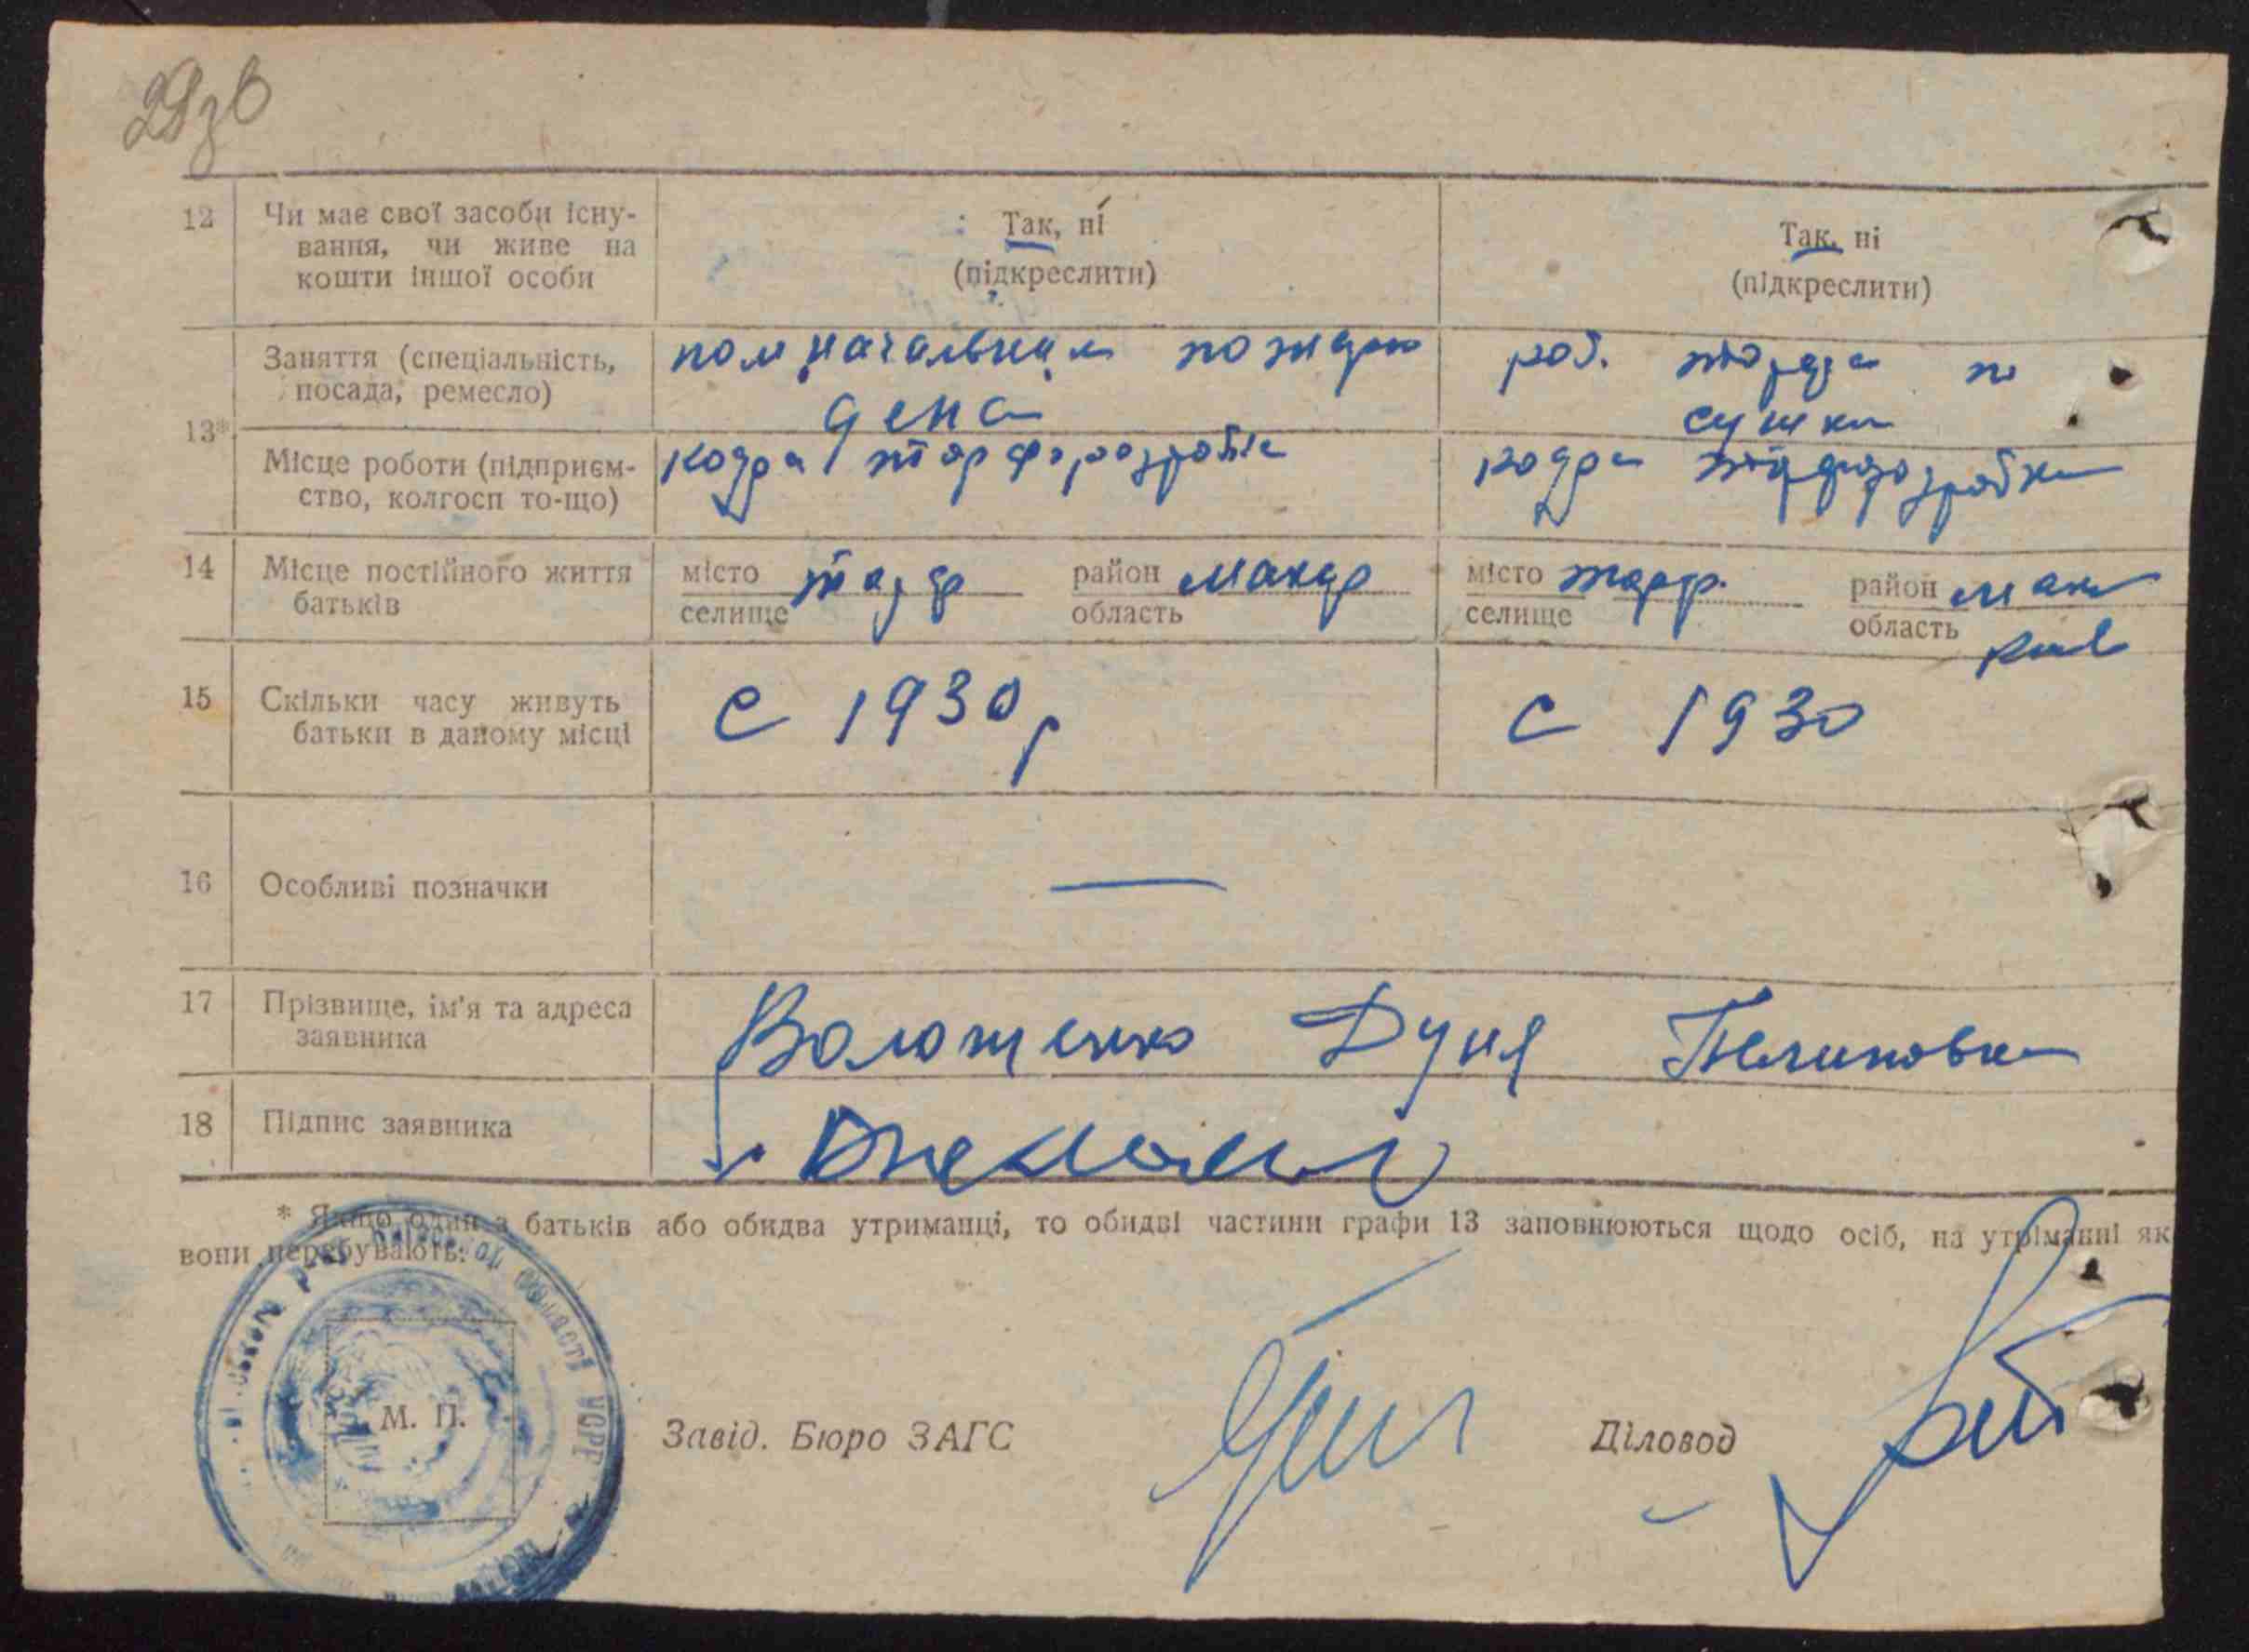 29зв
12 Чи має свої засоби існу- Так, ні Так, ні
вання, чи живе на
кошти іншої особи (підкреслити) (підкреслити)
Заняття (спеціальність, пом начальник пожарн роб. торфа по
посада, ремесло) сушки
13*
Місце роботи (підприєм- кодра торфоразробка кодра торфоразробка
ство, колгосп то-що)
14 Місце постійного життя місто торф район Макар місто торф. район Мак
батьків селище область селище область Киев
15 Скільки часу живуть с 1930 р с 1930
батьки в даному місці
16 Особливі позначки —
17 Прізвище, ім'я та адреса Волошенко Дуня
заявника
18 Підпис заявника
* Якщо один з батьків або обидва утриманці, то обидві частини графи 13 заповнюються щодо осіб, на утріманні як
вони перебувають.
області УСРР
М. П.
Завід. Бюро ЗАГС Діловод